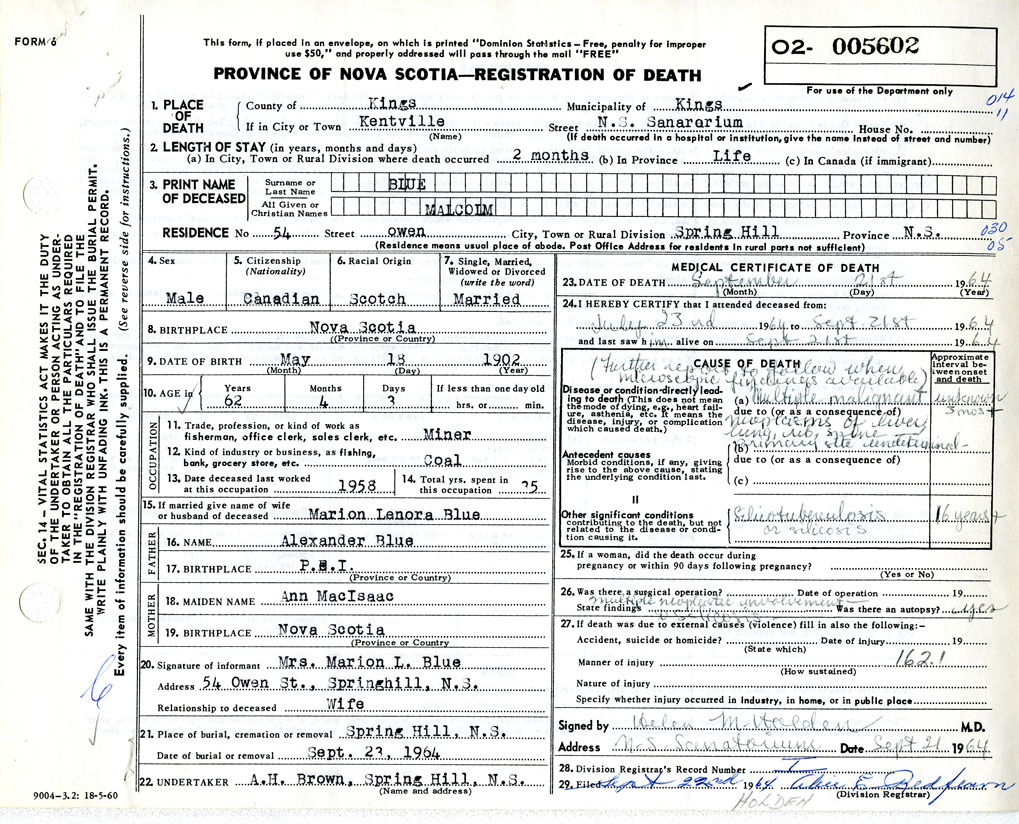 FORM 6
This form, if placed in an envelope, on which is printed "Dominion Statistics – Free, penalty for improper
use $50," and properly addressed will pass through the mail "FREE"
PROVINCE OF NOVA SCOTIA—REGISTRATION OF DEATH
O2- 005602
For use of the Department only
014
11
1. PLACE OF DEATH
County of Kings Municipality of Kings
If in City or Town Kentville Street N.S. Sanararium House No.
(Name) (If death occurred in a hospital or institution, give the name instead of street and number)
2. LENGTH OF STAY (in years, months and days)
(a) In City, Town or Rural Division where death occurred 2 months (b) In Province Life (c) In Canada (if immigrant)
3. PRINT NAME OF DECEASED
Surname or Last Name BLUE
All Given or Christian Names MALCOLM
RESIDENCE No 54 Street owen City, Town or Rural Division Spring Hill Province N.S.
030
05
(Residence means usual place of abode. Post Office Address for residents in rural parts not sufficient)
4. Sex
Male
5. Citizenship
(Nationality)
Canadian
6. Racial Origin
Scotch
7. Single, Married,
Widowed or Divorced
(write the word)
Married
8. BIRTHPLACE Nova Scotia
((Province or Country)
9. DATE OF BIRTH May 18 1902
(Month) (Day) (Year)
10. AGE in
Years Months Days If less than one day old
62 4 3 hrs. or min.
OCCUPATION
11. Trade, profession, or kind of work as
fisherman, office clerk, sales clerk, etc. Miner
12. Kind of industry or business, as fishing,
bank, grocery store, etc. Coal
13. Date deceased last worked
at this occupation 1958
14. Total yrs. spent in
this occupation 35
15. If married give name of wife
or husband of deceased Marion Lenora Blue
FATHER
16. NAME Alexander Blue
17. BIRTHPLACE P.E.I.
(Province or Country)
MOTHER
18. MAIDEN NAME Ann MacIsaac
19. BIRTHPLACE Nova Scotia
(Province or Country
20. Signature of informant Mrs. Marion L. Blue
Address 54 Owen St., Springhill, N.S.
Relationship to deceased Wife
21. Place of burial, cremation or removal Spring Hill, N.S.
Date of burial or removal Sept. 23, 1964
22. UNDERTAKER A.H. Brown, Spring Hill, N.S.
(Name and address)
MEDICAL CERTIFICATE OF DEATH
23. DATE OF DEATH September 21st 1964
(Month) (Day) (Year)
24. I HEREBY CERTIFY that I attended deceased from:
July 23rd 1964 to Sept. 21st 1964
and last saw him alive on Sept 21st 1964
CAUSE OF DEATH
(Further report to follow when
microscopic findings available)
Approximate
interval be-
tween onset
and death
Disease or condition directly lead-
ing to death (This does not mean
the mode of dying, e.g., heart fail-
ure, asthenia, etc. It means the
disease, injury, or complication
which caused death.)
(a) Multiple malignant unknown
3 mos +
due to (or as a consequence of)
neoplasms of liver,
lung, rib, spine
(b) primary site undetermined
Antecedent causes
Morbid conditions, if any, giving
rise to the above cause, stating
the underlying condition last.
due to (or as a consequence of)
(c)
II
Other significant conditions
contributing to the death, but not
related to the disease or condi-
tion causing it.
Silicotuberculosis 16 years +
or silicosis
25. If a woman, did the death occur during
pregnancy or within 90 days following pregnancy?
(Yes or No)
26. Was there a surgical operation? Date of operation 19
State findings multiple neoplastic involvement Was there an autopsy? yes
27. If death was due to external causes (violence) fill in also the following:-
Accident, suicide or homicide? Date of injury 19
(State which)
Manner of injury 162.1
(How sustained)
Nature of injury
Specify whether injury occurred in industry, in home, or in public place
Signed by Helen M. Holden M.D.
Address N.S. Sanatorium Date Sept 21 1964
28. Division Registrar's Record Number
29. Filed Sept 22nd 1964
(Division Registrar)
HOLDEN
SEC. 14 – VITAL STATISTICS ACT MAKES IT THE DUTY
OF THE UNDERTAKER OR PERSON ACTING AS UNDER-
TAKER TO OBTAIN ALL THE PARTICULARS REQUIRED
IN THE "REGISTRATION OF DEATH" AND TO FILE THE
SAME WITH THE DIVISION REGISTRAR WHO SHALL ISSUE THE BURIAL PERMIT.
WRITE PLAINLY WITH UNFADING INK. THIS IS A PERMANENT RECORD.
Every item of information should be carefully supplied. (See reverse side for instructions.)
6
9004-3.2: 18-5-60